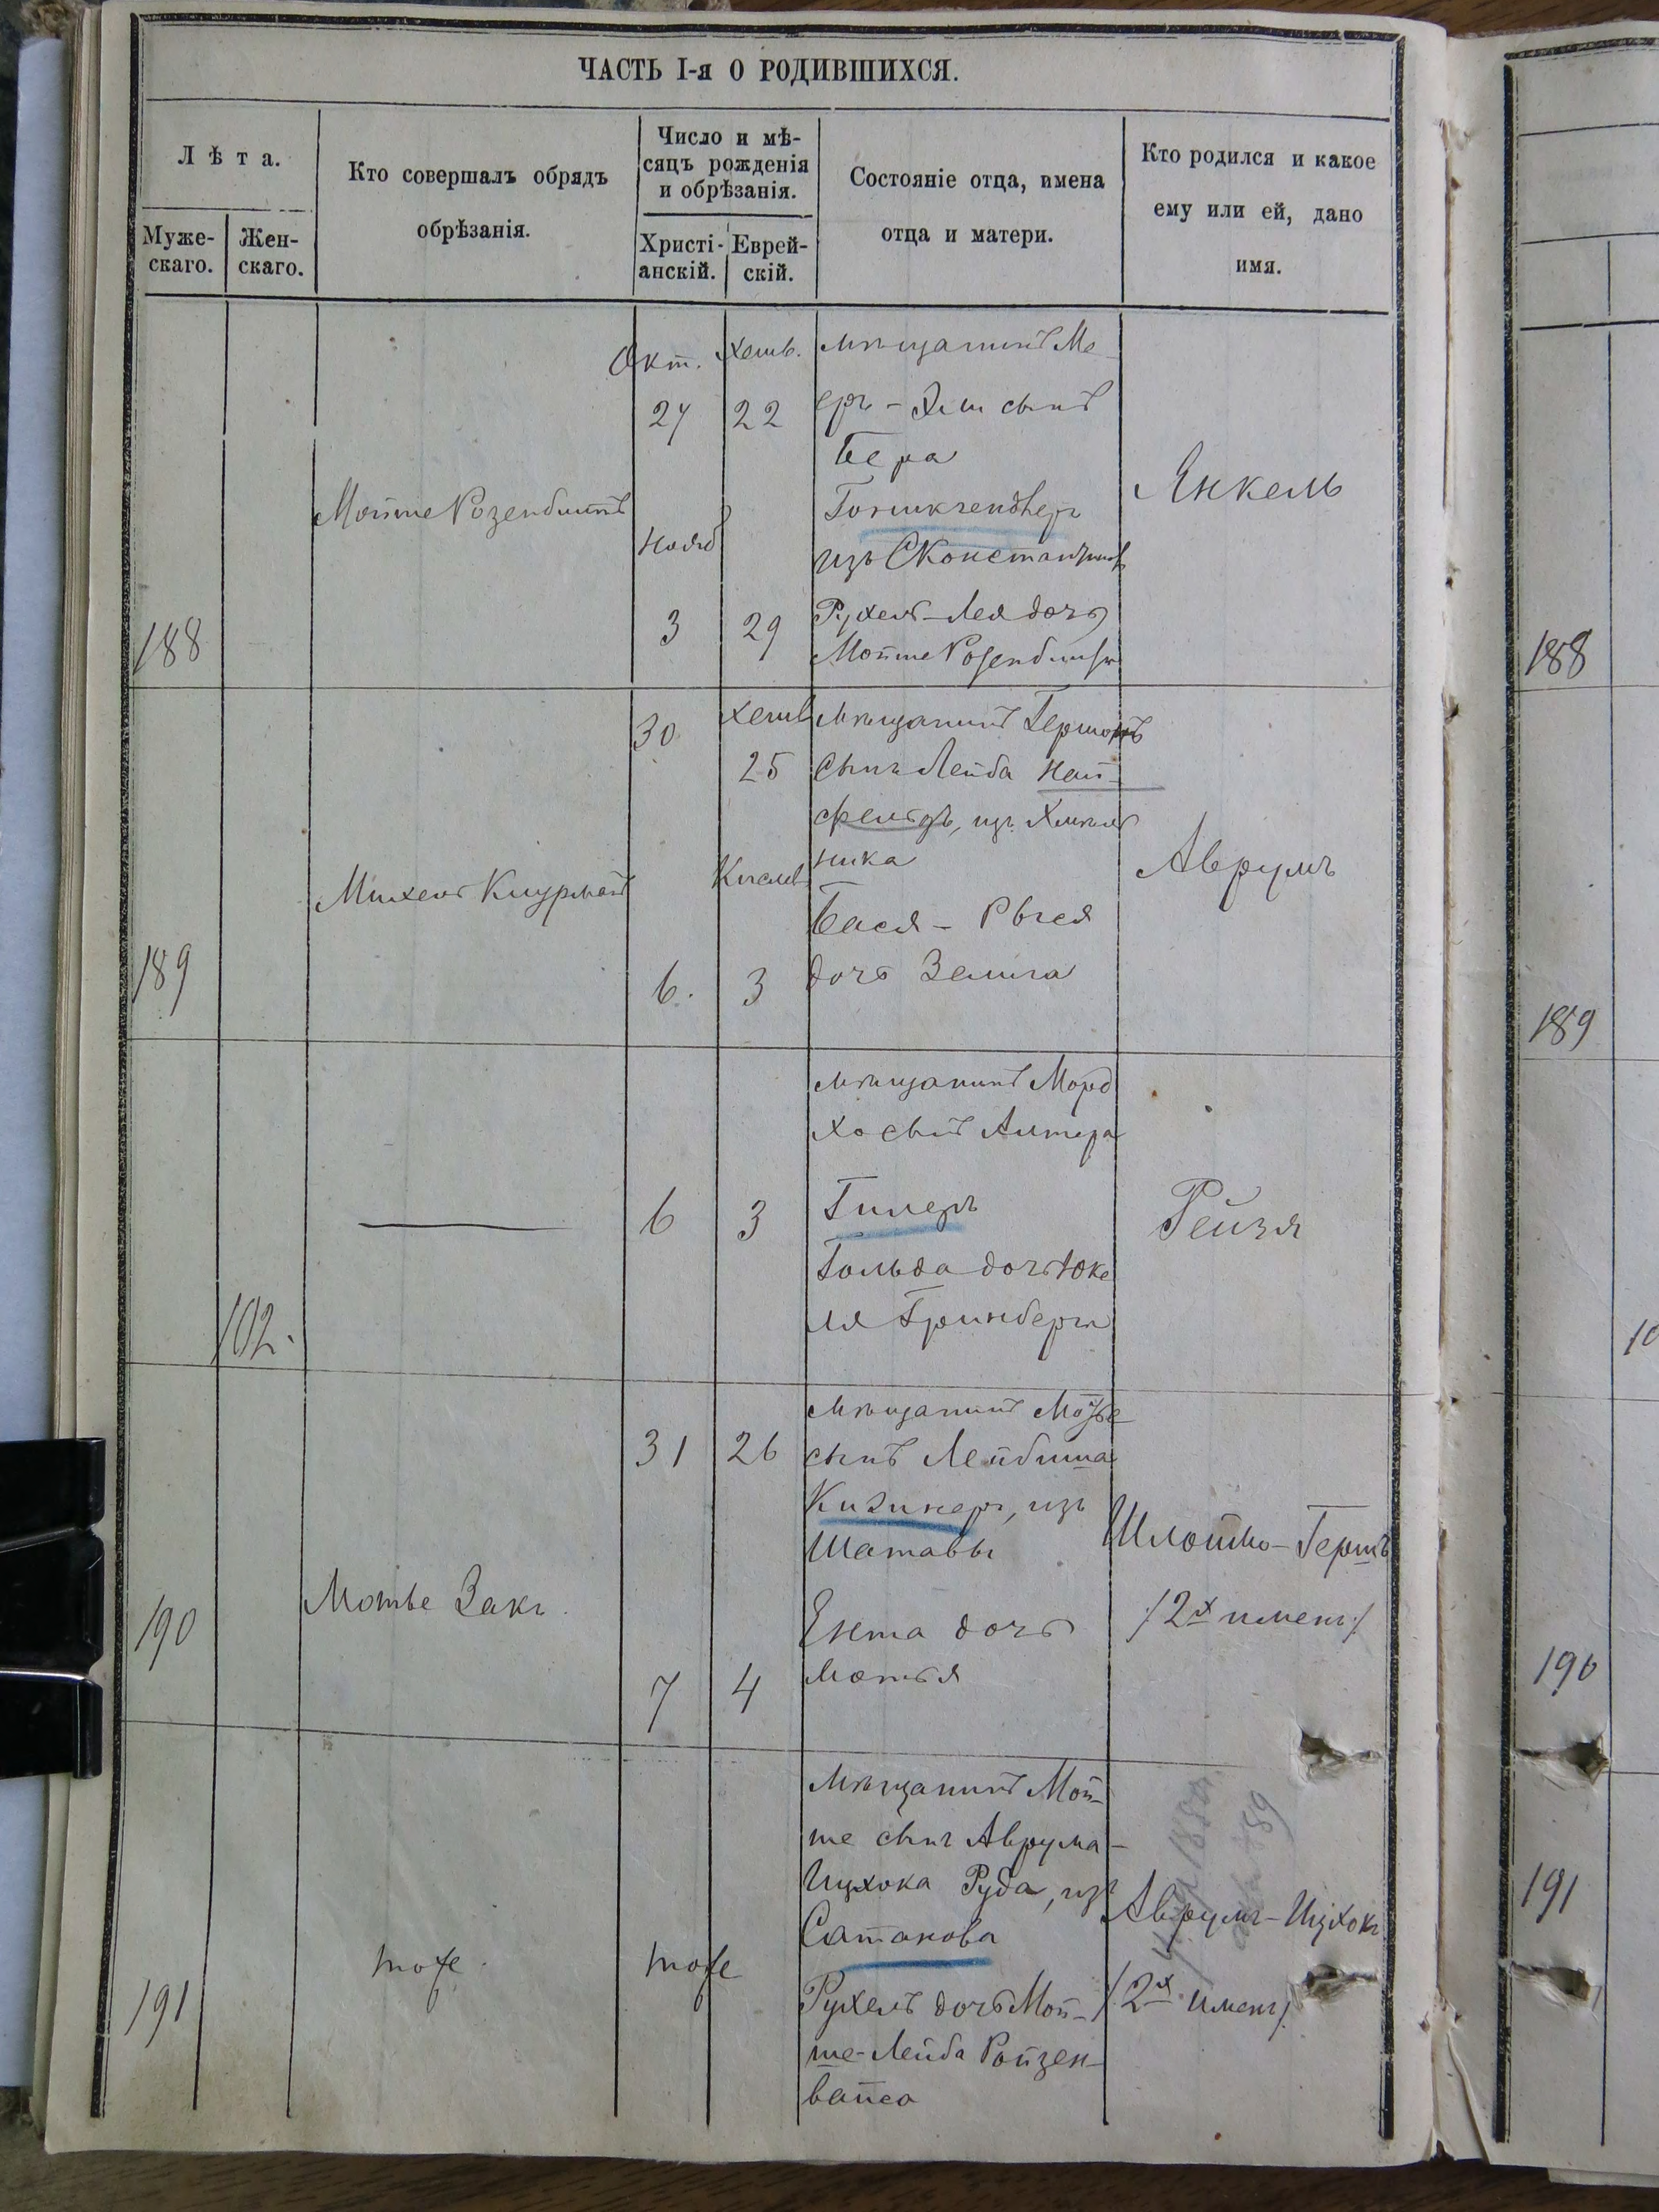 ЧАСТЬ I-я О РОДИВШИХСЯ.
Лѣта.
Муже-
скаго.
Жен-
скаго.
Кто совершалъ обрядъ
обрѣзанія.
Число и мѣ-
сяцъ рожденія
и обрѣзанія.
Христі-
анскій.
Еврей-
скій.
Состояніе отца, имена
отца и матери.
Кто родился и какое
ему или ей, дано
имя.
188
Мойше Розенблитъ
Окт.
27
Нояб
3
Хешв.
22
29
мѣщанинъ Ме
еръ - Эли сынъ
Бера
изъ СКонстантинов
Рухель-Лея дочь
Мойше
Янкель
189
Михель
30
6.
Хешв
25
Кислев
3
мѣщанинъ Гершонъ
сынъ Лейба Ней-
фельдъ, изъ Хмѣль
ника
Бася - Рыся
дочь Зелига
Аврумъ
102.
6
3
мѣщанинъ Морд
хо сынъ Алтера
Гилеръ
Гольда дочь Юке
ля Гринберга
Рейзя
190
Мотье Закъ.
31
7
26
4
мѣщанинъ
сынъ Лейбиша
Кизинеръ, изъ
Шатавы
Ента дочь
Мотья
Шлоймо-Гершъ
/2х именъ/
191
тоже.
тоже
мѣщанинъ Мой-
ше сынъ Аврума-
Ицхока Руда, изъ
Сатанова
Рухель дочь Мой-
ше-Лейба Ройзен-
вайса
Аврумъ-Ицхокъ
/2х именъ/
188
189
10
190
191